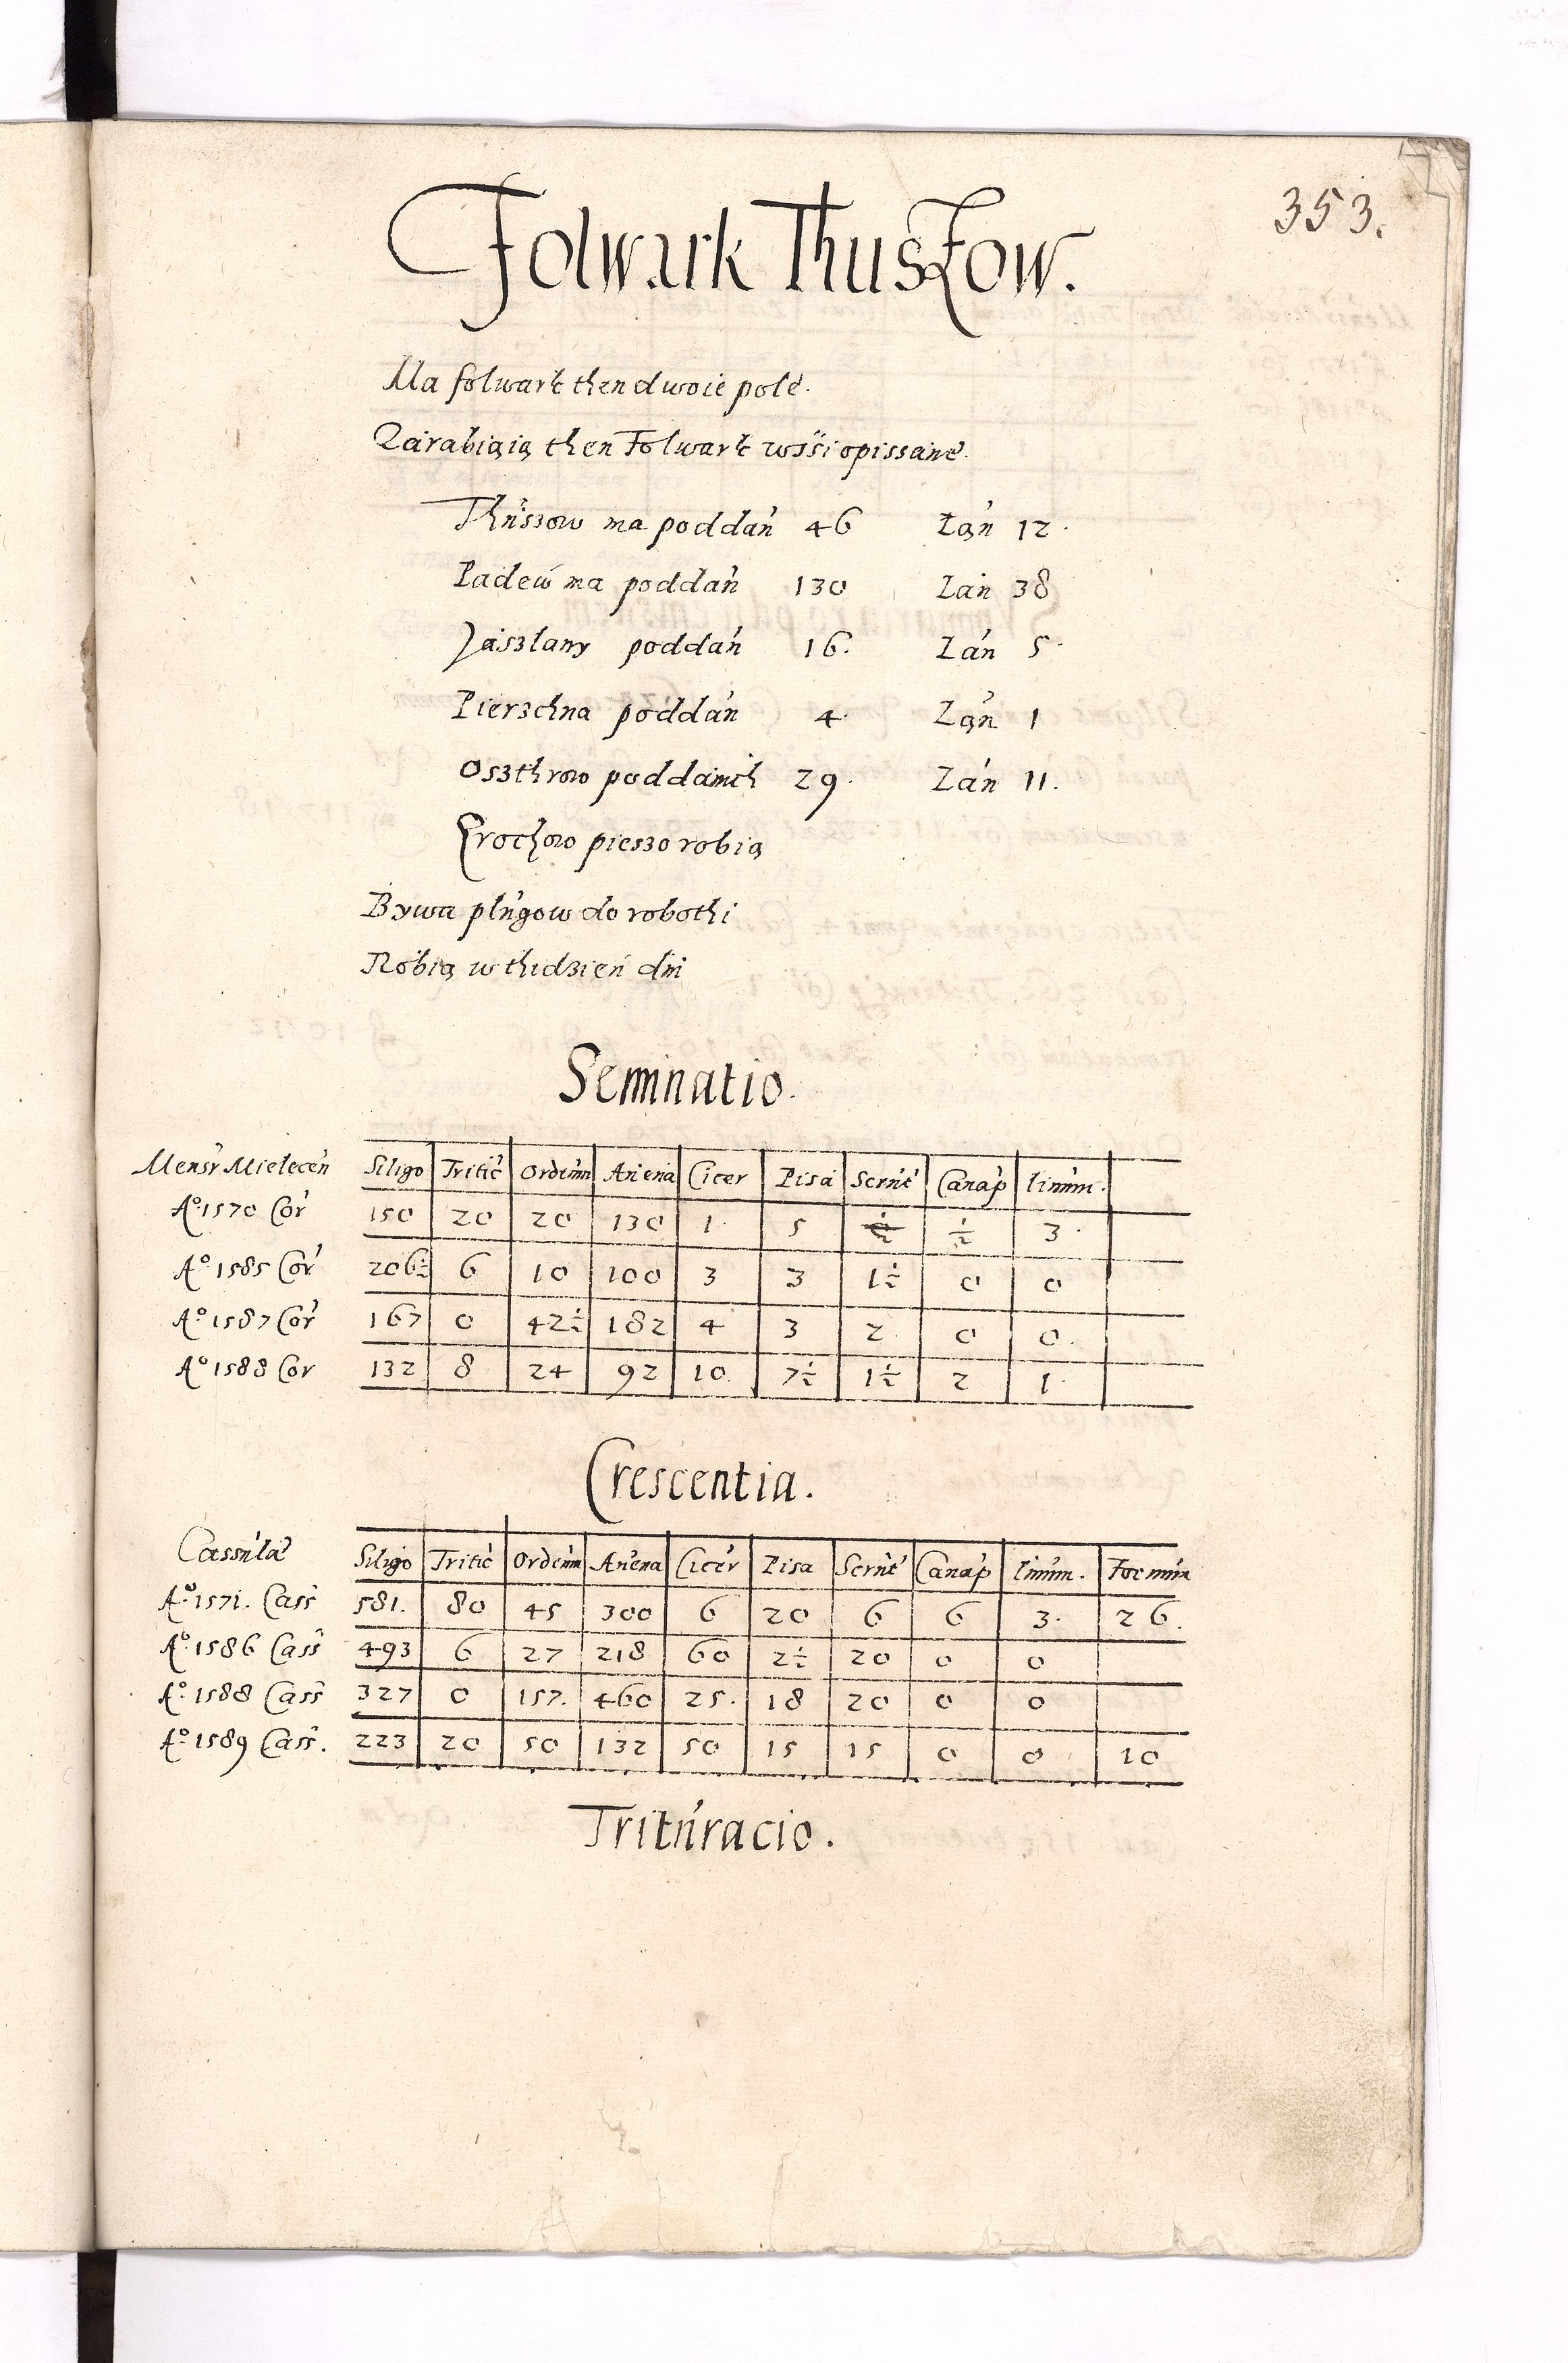 353.
Folwark Thuszow.
Ma folwark then dwoie pole.
Zarabiaią then Folwark wssi opissane.
Thuszow ma poddań 46 Łan 12.
Padew ma poddań 130 Łan 38
Jaszlany poddań 16. Łan 5.
Pierschna poddań 4. Łan 1
Oszthrow poddanich 29. Łan 11.
Grochow pieszo robią
Bywa plugow do robothi
Robią w thidzień dni
Seminatio.
Mensr Mielecen Siligo Tritic Ordeum Auena Cicer Pisa Canap linum.
A° 1570 Cor 150 20 20 130 1. 5 ½ 3.
A° 1585 Cor 206½ 6 10 100 3 3 1½ 0 0
A° 1587 Cor 167 0 42½ 182 4 3 2. 0 0.
A° 1588 Cor 132 8 24 92 10. 7½ 1½ 2 1.
Crescentia.
Cassula Siligo Tritic Ordeum Auena Cicer Pisa Canap linum.
A° 1571. Cass 581. 80 45 300 6 20 6 6 3. 26.
A° 1586 Cass 493 6 27 218 60 2½ 20 0 0
A° 1588 Cass 327 0 157. 460 25. 18 20 0 0
A° 1589 Cass. 223 20 50 132 50 15 15 0 0 10
Trituracio.